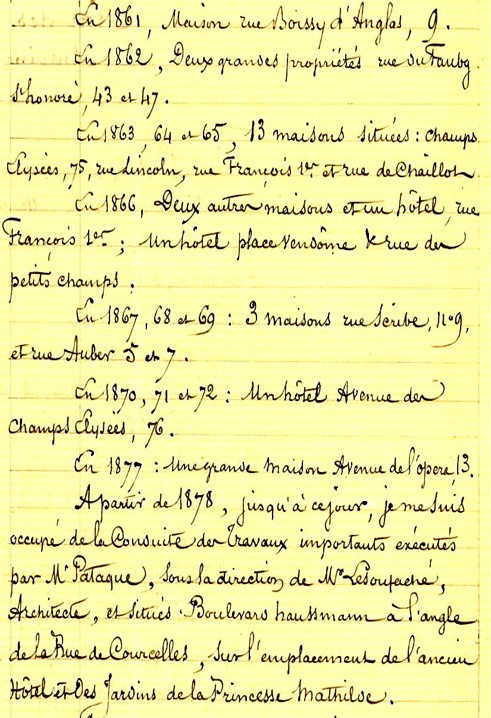 En 1861, Maison rue Boissy d'Anglas, 9.
En 1862, Deux grandes propriétés rue du Faubg
St honoré, 43 et 47.
En 1863, 64 et 65, 13 maisons situées : champs
Elysées, 75, rue Lincoln, rue François 1er et rue de Chaillot
En 1866, Deux autres maisons et un hôtel, rue
François 1er ; Un hôtel place Vendôme & rue des
petits champs.
En 1867, 68 et 69 : 3 maisons rue Scribe, N°9,
et rue Auber 5 et 7.
En 1870, 71 et 72 : Un hôtel Avenue des
champs Elysees, 76.
En 1877 : Une grande maison Avenue de l'opera, 13.
A partir de 1878, jusqu'à ce jour, je me suis
occupé de la Conduite des Travaux importants exécutés
par Mr Pataque, sous la direction de Mr Lesoufaché,
Architecte, et situés Boulevard haussmann à l'angle
de la Rue de Courcelles, sur l'emplacement de l'ancien
Hôtel et Des Jardins de la Princesse Mathilde.